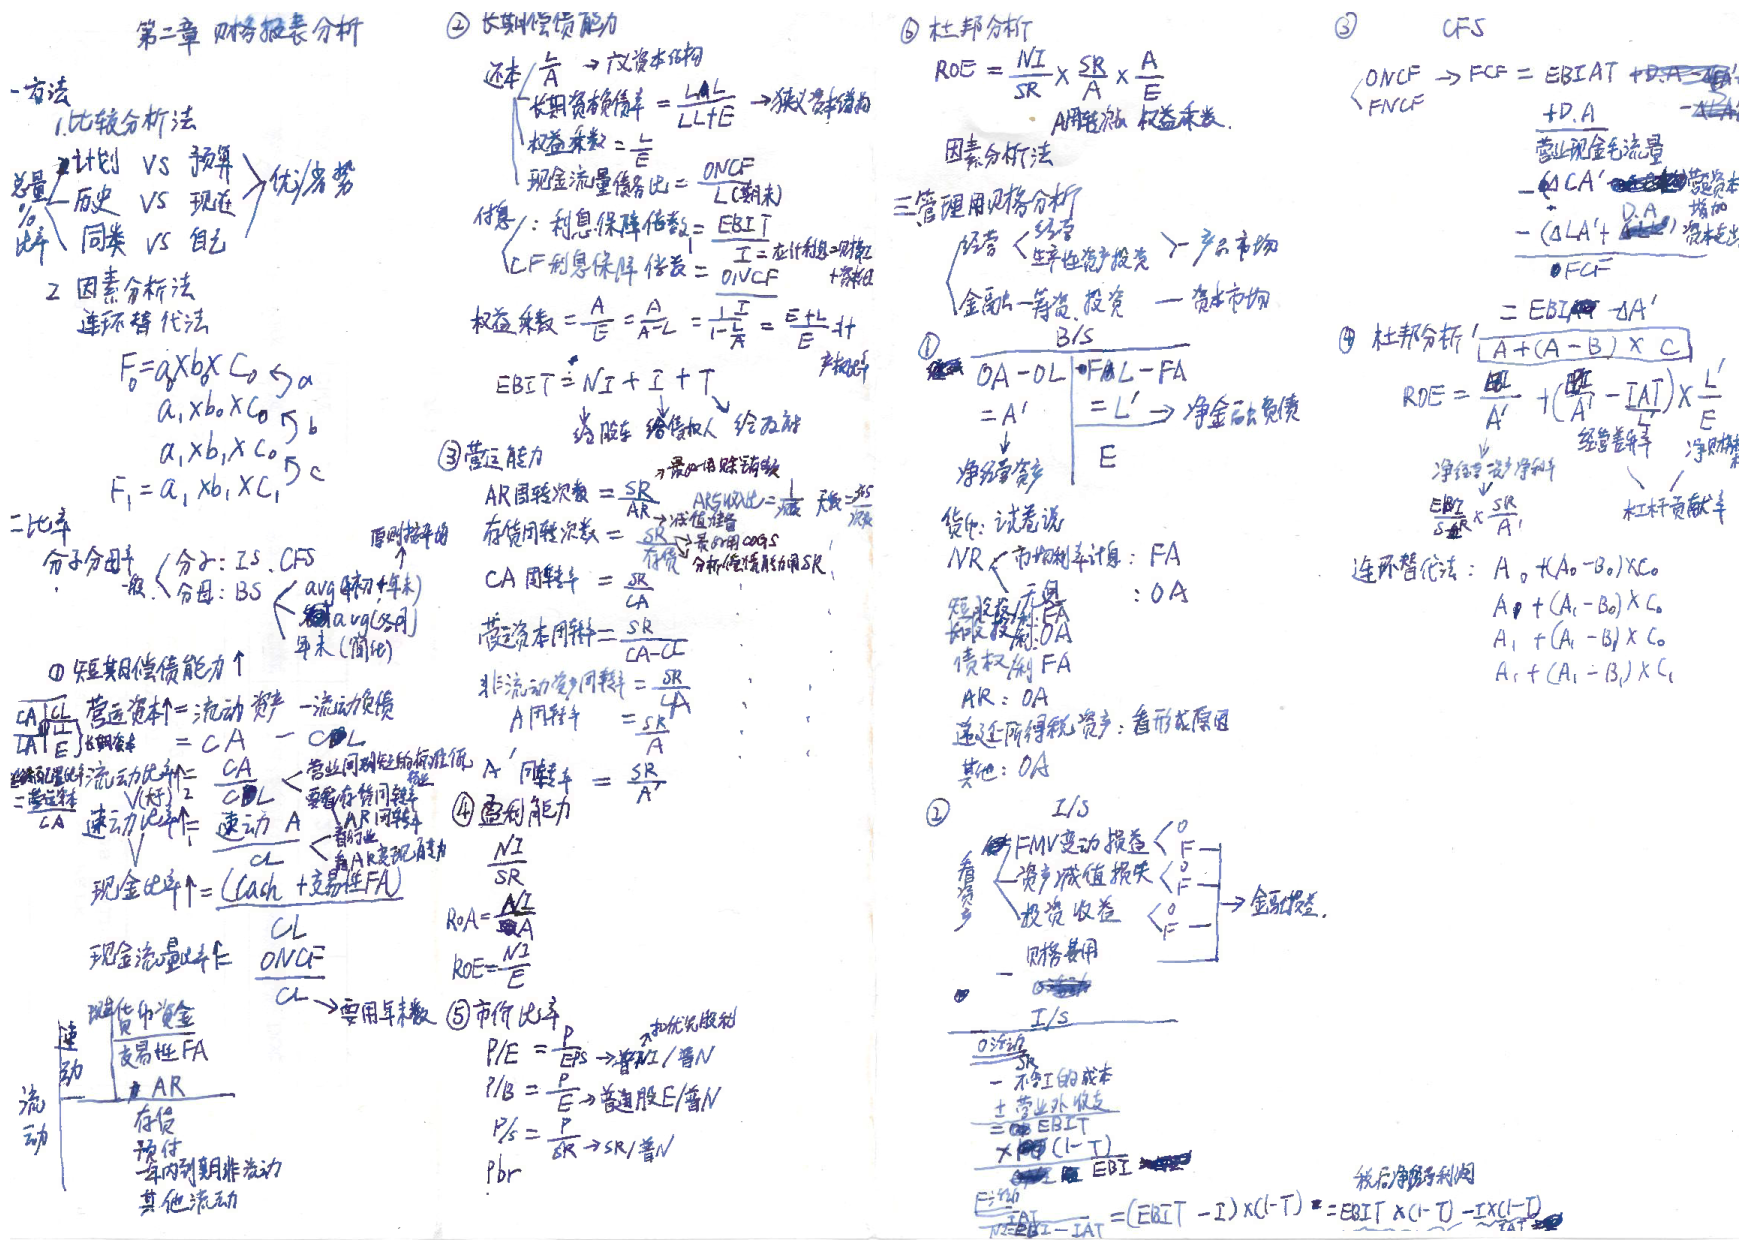 第二章 财务报表分析
一方法
1.比较分析法
总量 % 比率
计划 VS 预算
历史 VS 现在
同类 VS 自己
优/劣势
2 因素分析法
连环替代法
F₀=a₀×b₀×C₀
a₁×b₀×C₀
a₁×b₁×C₀
F₁=a₁×b₁×C₁
a
b
c
二比率
分子分母率
一般
分子：IS、CFS
分母：BS
原则按平均
avg(年初+年末)
avg(各月)
年末(简化)
① 短期偿债能力↑
CA CL
LA LL
E
长期资本
营运资本↑=流动资产－流动负债
= CA － CL
流动比率↑= CA/CL
=营运资本/CA
速动比率↑= 速动A/CL
AR周转率
现金比率↑= (Cash+交易性FA)/CL
现金流量比率↑= ONCF/CL →要用年末数
流动
速动
货币资金
交易性FA
AR
存货
预付
一年内到期非流动
其他流动
② 长期偿债能力
还本 L/A →广义资本结构
长期资本负债率= LL/(LL+E) →狭义资本结构
权益乘数=L/E
现金流量债务比= ONCF/L(期末)
付息：利息保障倍数= EBIT/I
I=应计利息=财务I+资本I
CF利息保障倍数= ONCF/I
权益乘数= A/E = A/(A-L) = 1/(1-L/A) = (E+L)/E =1+产权比率
EBIT=NI+I+T
给股东 给债权人 给政府
③营运能力
→最好用赊销数
AR周转次数= SR/AR →减值准备
AR与收入比=1/次数 天数=365/次数
存货周转次数= SR/存货 →最好用COGS
分析偿债能力用SR
CA周转率= SR/CA
营运资本周转率= SR/(CA-CL)
非流动资产周转率= SR/LA
A周转率= SR/A
A'周转率= SR/A'
④盈利能力
NI/SR
ROA=NI/A
ROE=NI/E
⑤市价比率
扣优先股利
P/E = P/EPS →普NI/普N
P/B = P/E →普通股E/普N
P/S = P/SR →SR/普N
Pbr
⑥ 杜邦分析
ROE = NI/SR × SR/A × A/E
A周转次数 权益乘数.
因素分析法
三管理用财务分析
经营
经营
生产性资产投资
－产品市场
金融－筹资、投资 — 资本市场
① B/S
OA-OL FL-FA
=A' =L' →净金融负债
净经营资产 E
货币：试卷说
NR
市场利率计息：FA
无息：OA
短股投/利:FA
长股投/利:OA
债权/利 FA
AR：OA
递延所得税资产：看形成原因
其他：OA
② I/S
看资产
FMV变动损益 O F
资产减值损失 O F
投资收益 O F
财务费用
→金融损益.
I/S
O活动
SR
－不含I的成本
±营业外收支
= EBIT
×(1-T)
EBI
F活动
IAT
NI=EBI-IAT =(EBIT-I)×(1-T) =EBIT×(1-T)-I×(1-T)
税后净经营利润
IAT
③ CFS
ONCF
FNCF
→FCF = EBIAT
+D.A
营业现金毛流量
-ΔCA' 营运资本增加
-(ΔLA'+D.A) 资本支出
FCF
= EBI -ΔA'
④ 杜邦分析' A+(A-B)×C
ROE= EBI/A' +(EBI/A' - IAT/L')× L'/E
净经营资产净利率
经营差异率
EBI/SR × SR/A'
杠杆贡献率
连环替代法：A₀+(A₀-B₀)×C₀
A₁+(A₁-B₀)×C₀
A₁+(A₁-B₁)×C₀
A₁+(A₁-B₁)×C₁